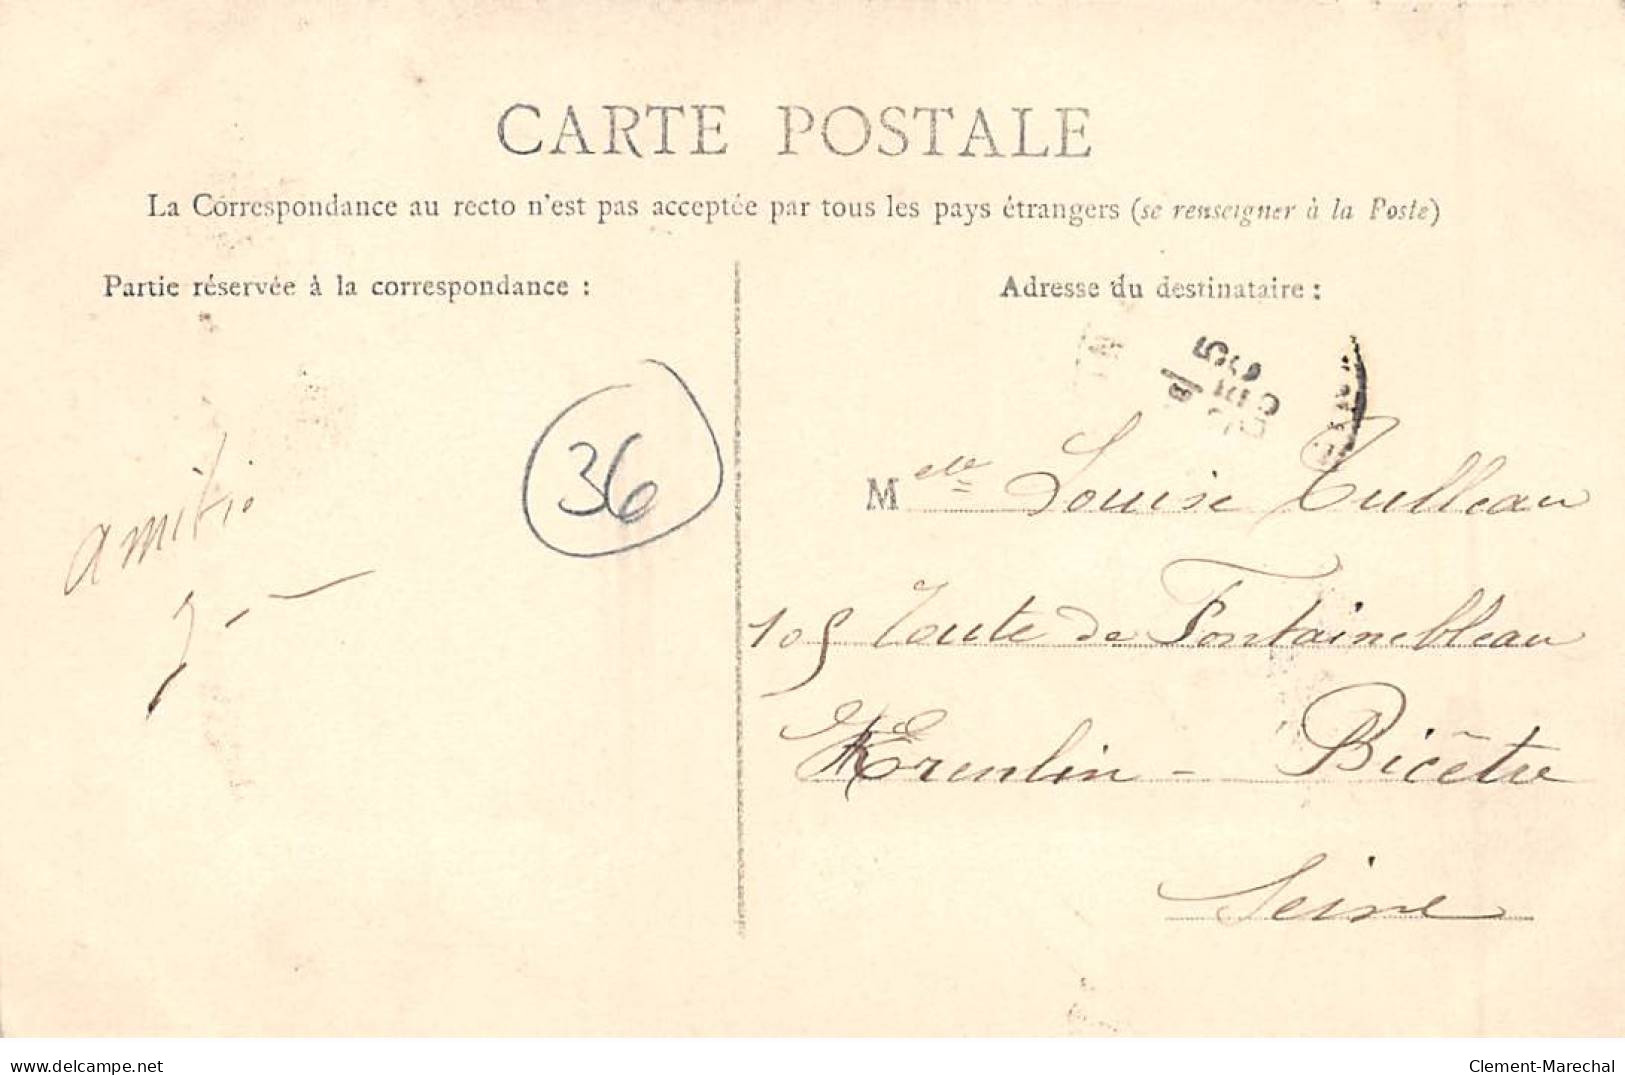 CARTE POSTALE
La Correspondance au recto n'est pas acceptée par tous les pays étrangers (se renseigner à la Poste)
Partie réservée à la correspondance :
Adresse du destinataire :
36
amitié
Melle Louise Tulleau
105 route de Fontainebleau
Kremlin - Bicêtre
Seine
delcampe.net
Clement-Marechal